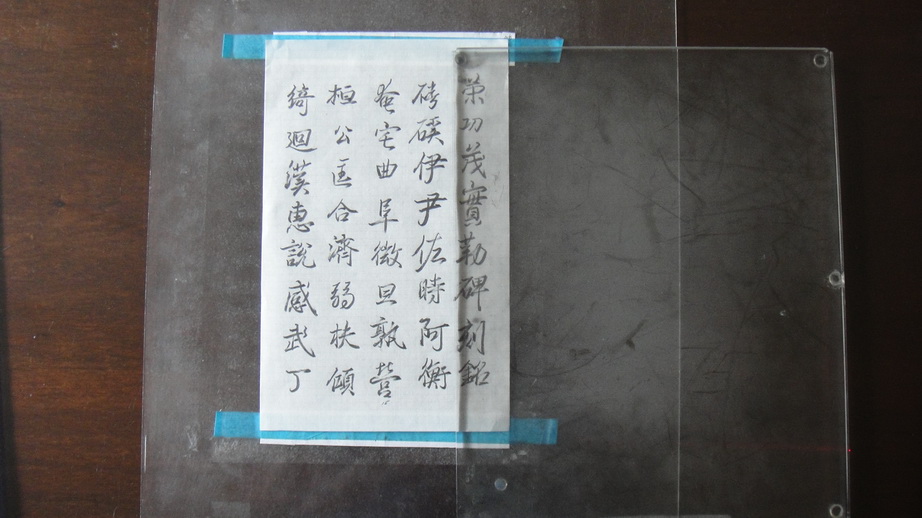 策功茂實勒碑刻銘
磻磎伊尹佐時阿衡
奄宅曲阜微旦孰營
桓公匡合濟弱扶傾
綺廻漢惠說感武丁